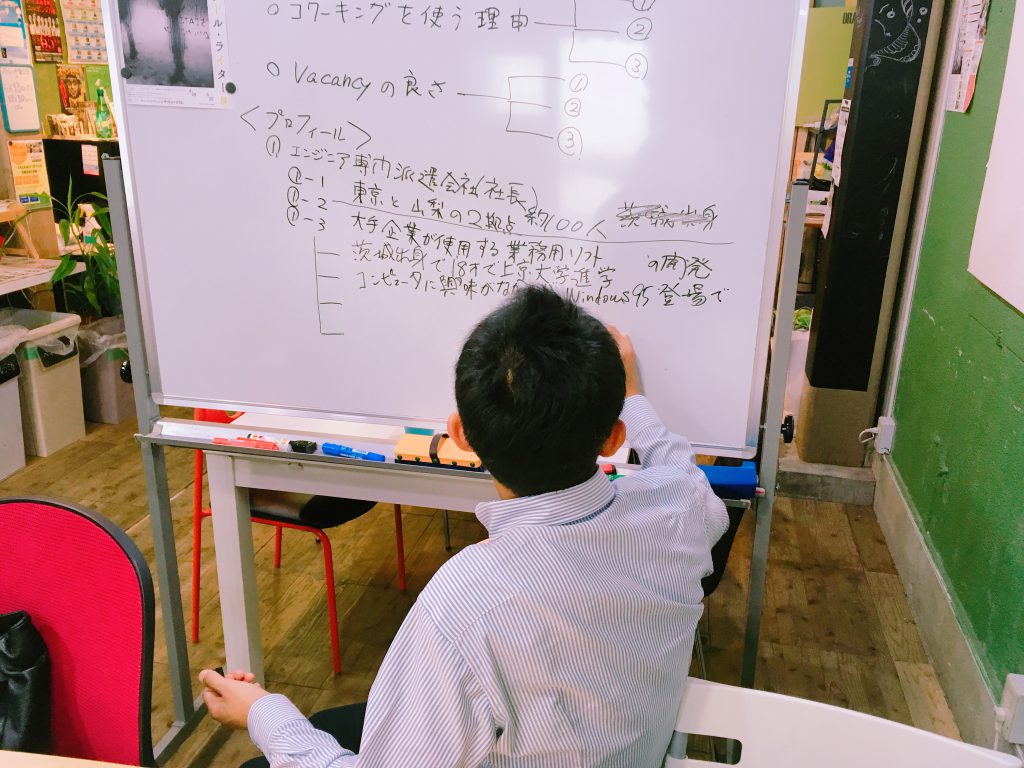 ①
○コワーキングを使う理由
②
③
○Vacancyの良さ
①
②
③
＜プロフィール＞
① エンジニア専門派遣会社(社長)
①-1 東京と山梨の2拠点 約100人
①-2 大手企業が使用する業務用ソフトの開発
①-3 茨城出身で18才で上京大学進学
コンピュータに興味がな
Windows95登場で